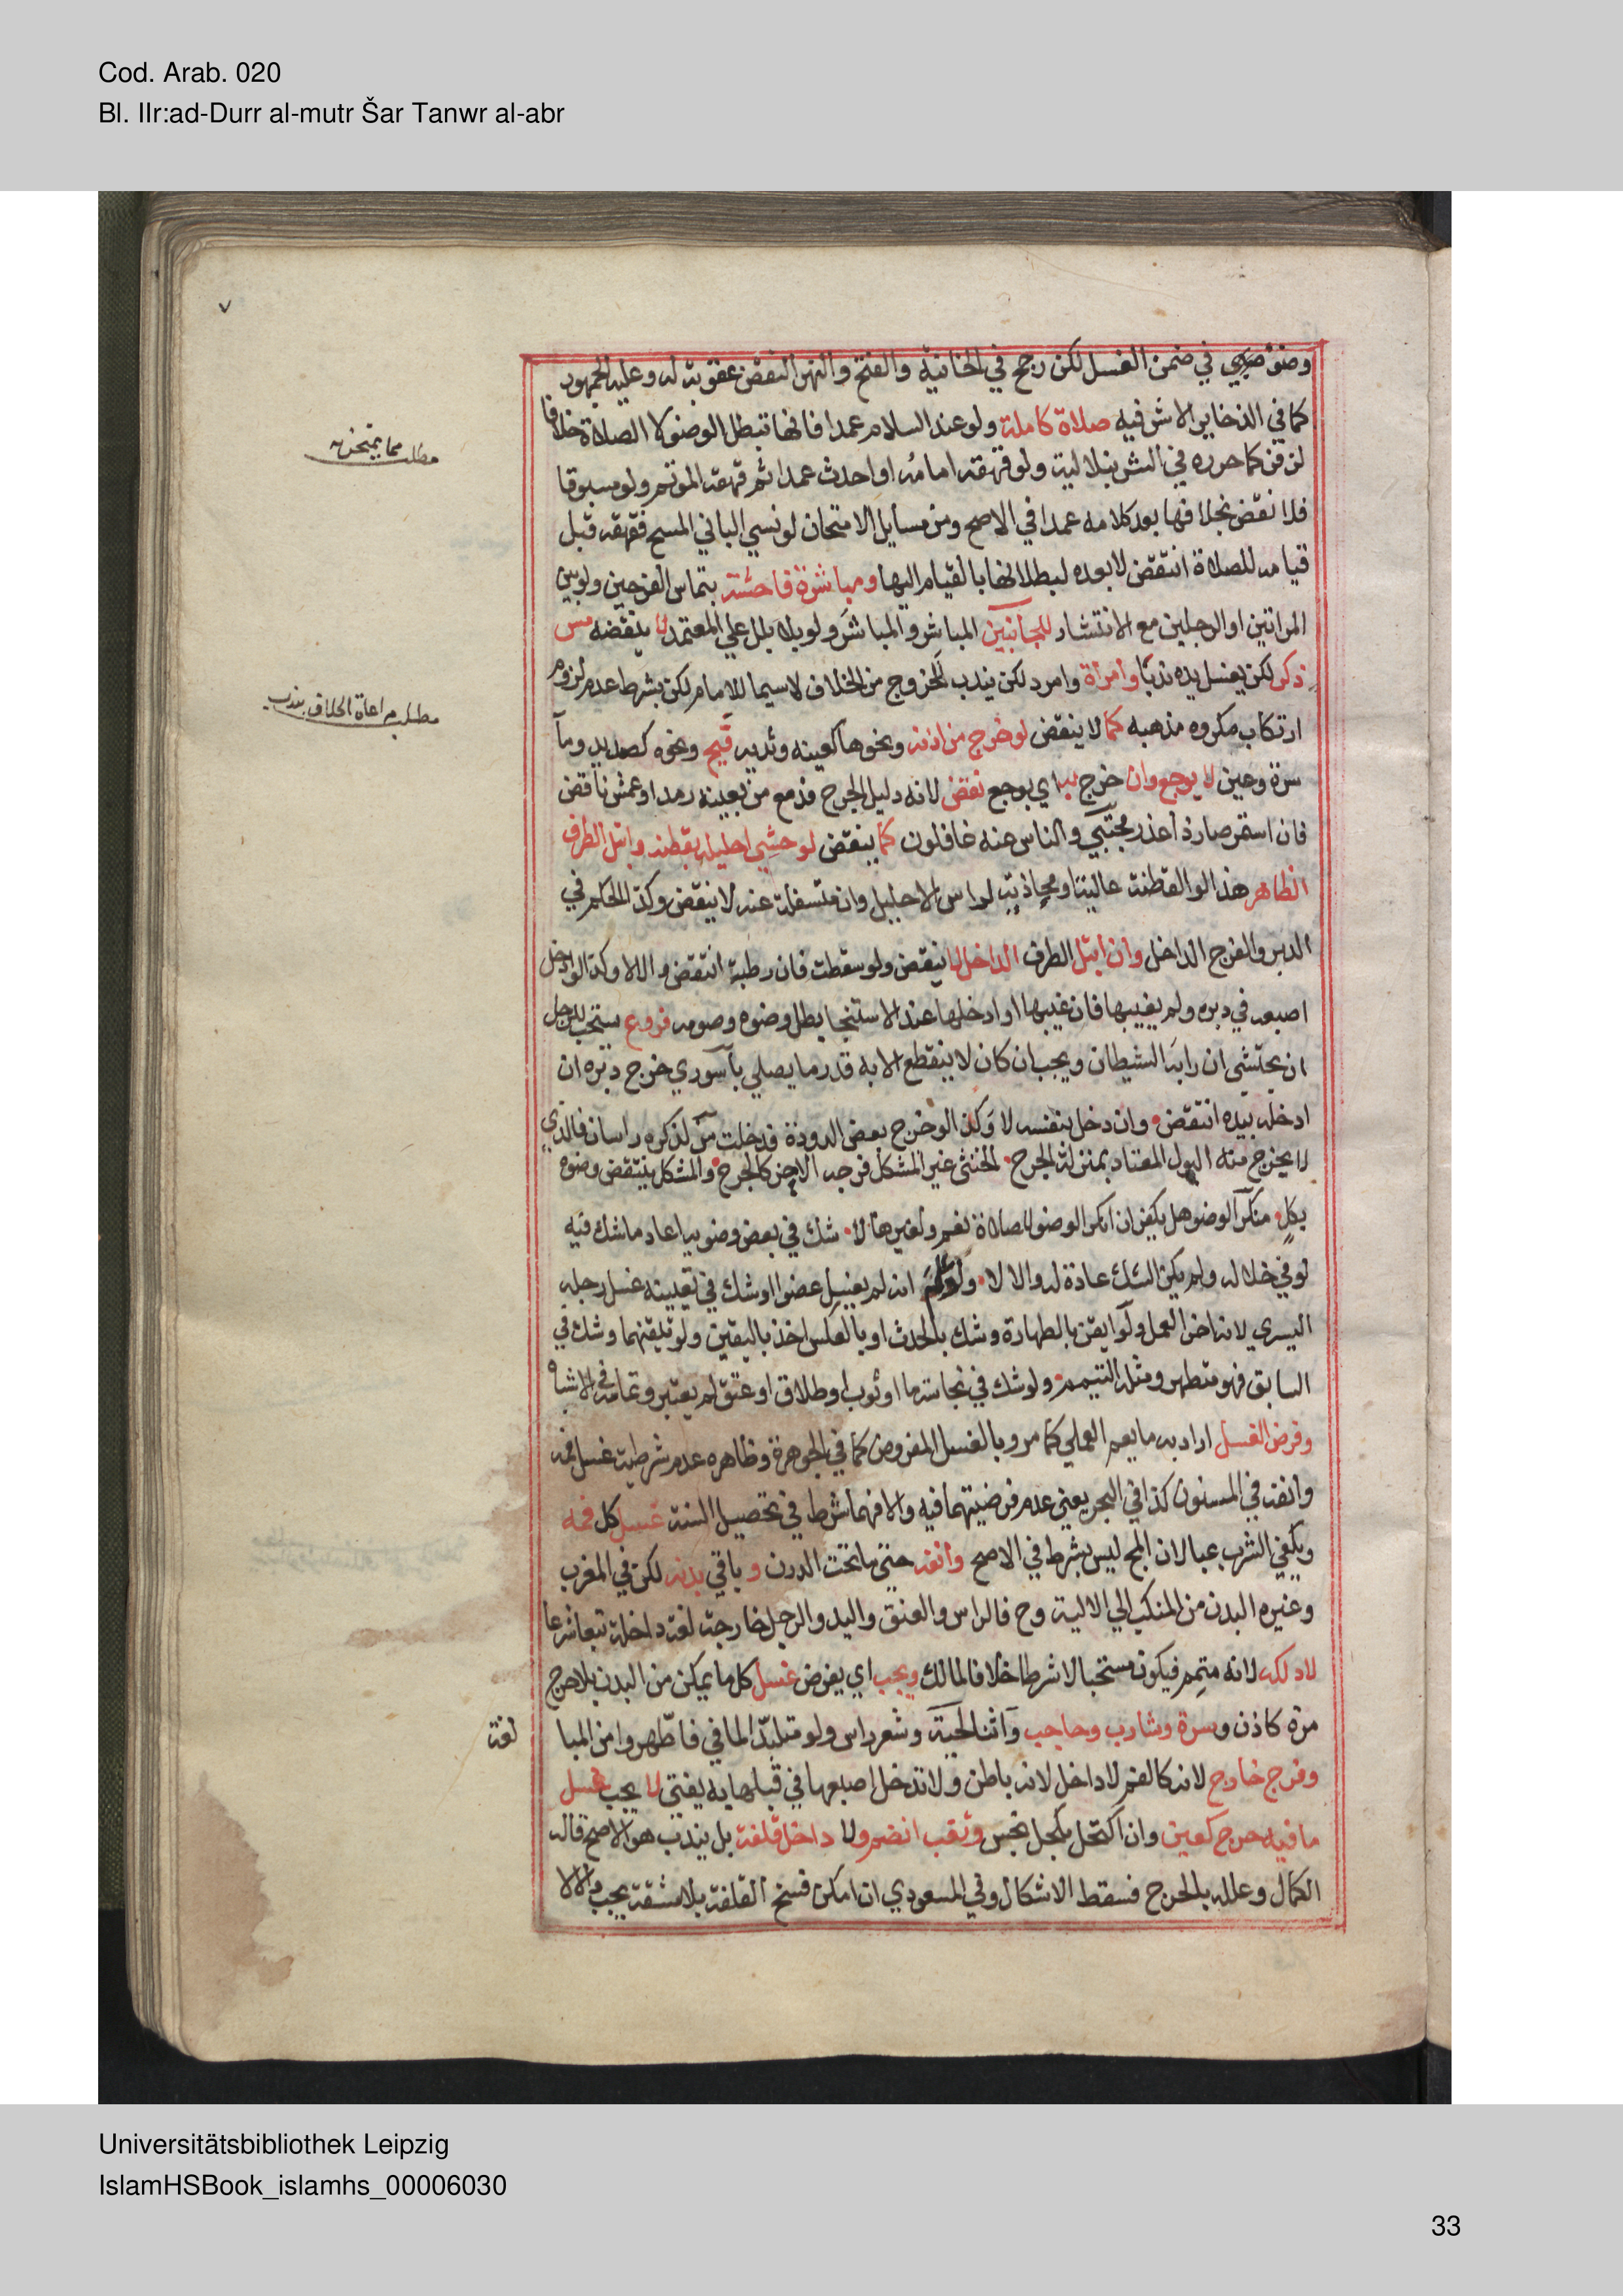 Cod. Arab. 020
Bl. IIr:ad-Durr al-mutr Šar Tanwr al-abr
٧
وضوء في ضمن الغسل لكن رجح في الخانية والفتح والنهر النقض عقوبة له وعليه الجمهور
كما في الذخاير الاشرفيه صلاة كاملة ولو عند السلام عمدا فانها تبطل الوضو لا الصلاة خلافا
مطلب مما يمتحن به
لزفر كما حرره في الشرنبلالية ولو قهقه امامه او احدث عمدا ثم قهقه الموتم ولو مسبوقا
فلا نقض بخلافها بعد كلامه عمدا في الاصح ومن مسايل الامتحان لو نسي الباني المسح فقهقه قبل
قيامه للصلاة انتقض لا بعده لبطلانها بالقيام اليها ومباشرة فاحشة بتماس الفرجين ولو بين
المراتين او الرجلين مع الانتشار للجانبين المباشر والمباشر ولو بلا بلل علي المعتمد لا ينقضه مس
ذكر لكن يغسل يده ندبا وامراة وامرد لكن يندب للخروج من الخلاف لاسيما للامام لكن بشرط عدم لزوم
مطلب مراعاة الخلاف يندب
ارتكاب مكروه مذهبه كما لا ينقض لو خرج من اذنه ونحوها كعينه وثديه قيح ونحوه كصديد وما
سرة وعين لا يوجع وان خرج به اي بوجع نقض لانه دليل الجرح فدمع من بعينه رمد او عمش ناقض
فان استمر صار ذا عذر مجتبي والناس عنه غافلون كما ينقض لو حشي احليله بقطنه وابتل الطرف
الظاهر هذا لو القطنة عالية او محاذية لراس الاحليل وان متسفلة عنه لا ينقض وكذا الحكم في
الدبر والفرج الداخل وان ابتل الطرف الداخل لا ينقض ولو سقطت فان رطبة انتقض والا لا وكذا لو ادخل
اصبعه في دبره ولم يغيبها فان غيبها او ادخلها عند الاستنجا بطل وضوه وصومه فروع يستحب للرجل
ان يحتشي ان رابه الشيطان ويجب ان كان لا ينقطع الا به قدر ما يصلي باسوري خرج دبره ان
ادخله بيده انتقض وان دخل بنفسه لا وكذا لو خرج بعض الدودة فدخلت من لذكره راسان فالذي
لا يخرج منه البول المعتاد بمنزلة الجرح الخنثي غير المشكل فرجه الاخر كالجرح والمشكل ينتقض وضوه
بكل منكر الوضو هل يكفر ان انكر الوضو للصلاة نعم ولغيرها لا شك في بعض وضويه اعاد ما شك فيه
لو في خلاله ولم يكن الشك عادة له والا لا ولو علم انه لم يغسل عضوا وشك في تعيينه غسل رجله
اليسري لانه اخر العمل ولو ايقن بالطهارة وشك بالحدث او بالعكس اخذ باليقين ولو تيقنهما وشك في
السابق فهو متطهر ومثله التيمم ولو شك في نجاسة ما او ثوب او طلاق او عتق لم يعتبر وتمامه في الاشباه
وفرض الغسل اراد به ما يعم العملي كما مر وبالغسل المفروض كما في الجوهرة وظاهره عدم شرطية غسل فمه
وانفه في المسنون كذا في البحر يعني عدم فرضيتهما فيه والا فهما شرط في تحصيل السنة غسل كل فمه
ويكفي الشرب عبا لان المج ليس بشرط في الاصح وانفه حتي ما تحت الدرن و باقي بدنه لكن في المغرب
وغيره البدن من المنكب الي الالية وح فالراس والعنق واليد والرجل خارجة لغة داخلة تبعا شرعا
لا دلكه لانه متمم فيكون مستحبا لا شرطا خلافا لمالك ويجب اي يفرض غسل كل ما يمكن من البدن بلا حرج
مرة كاذن وسرة وشارب وحاجب واثنا لحية وشعر راس ولو متلبدا لما في فاطهروا من المبا
لغة
وفرج خارج لانه كالفم لا داخل لانه باطن ولا تدخل اصبعها في قبلها به يفتي لا يجب غسل
ما فيه حرج كعين وان اكتحل بكحل نجس وثقب انضم ولا داخل قلفة بل يندب هو الاصح قاله
الكمال وعلله بالحرج فسقط الاشكال وفي المسعودي ان امكن فسخ القلفة بلا مشقة يجب والا لا
Universitätsbibliothek Leipzig
IslamHSBook_islamhs_00006030
33